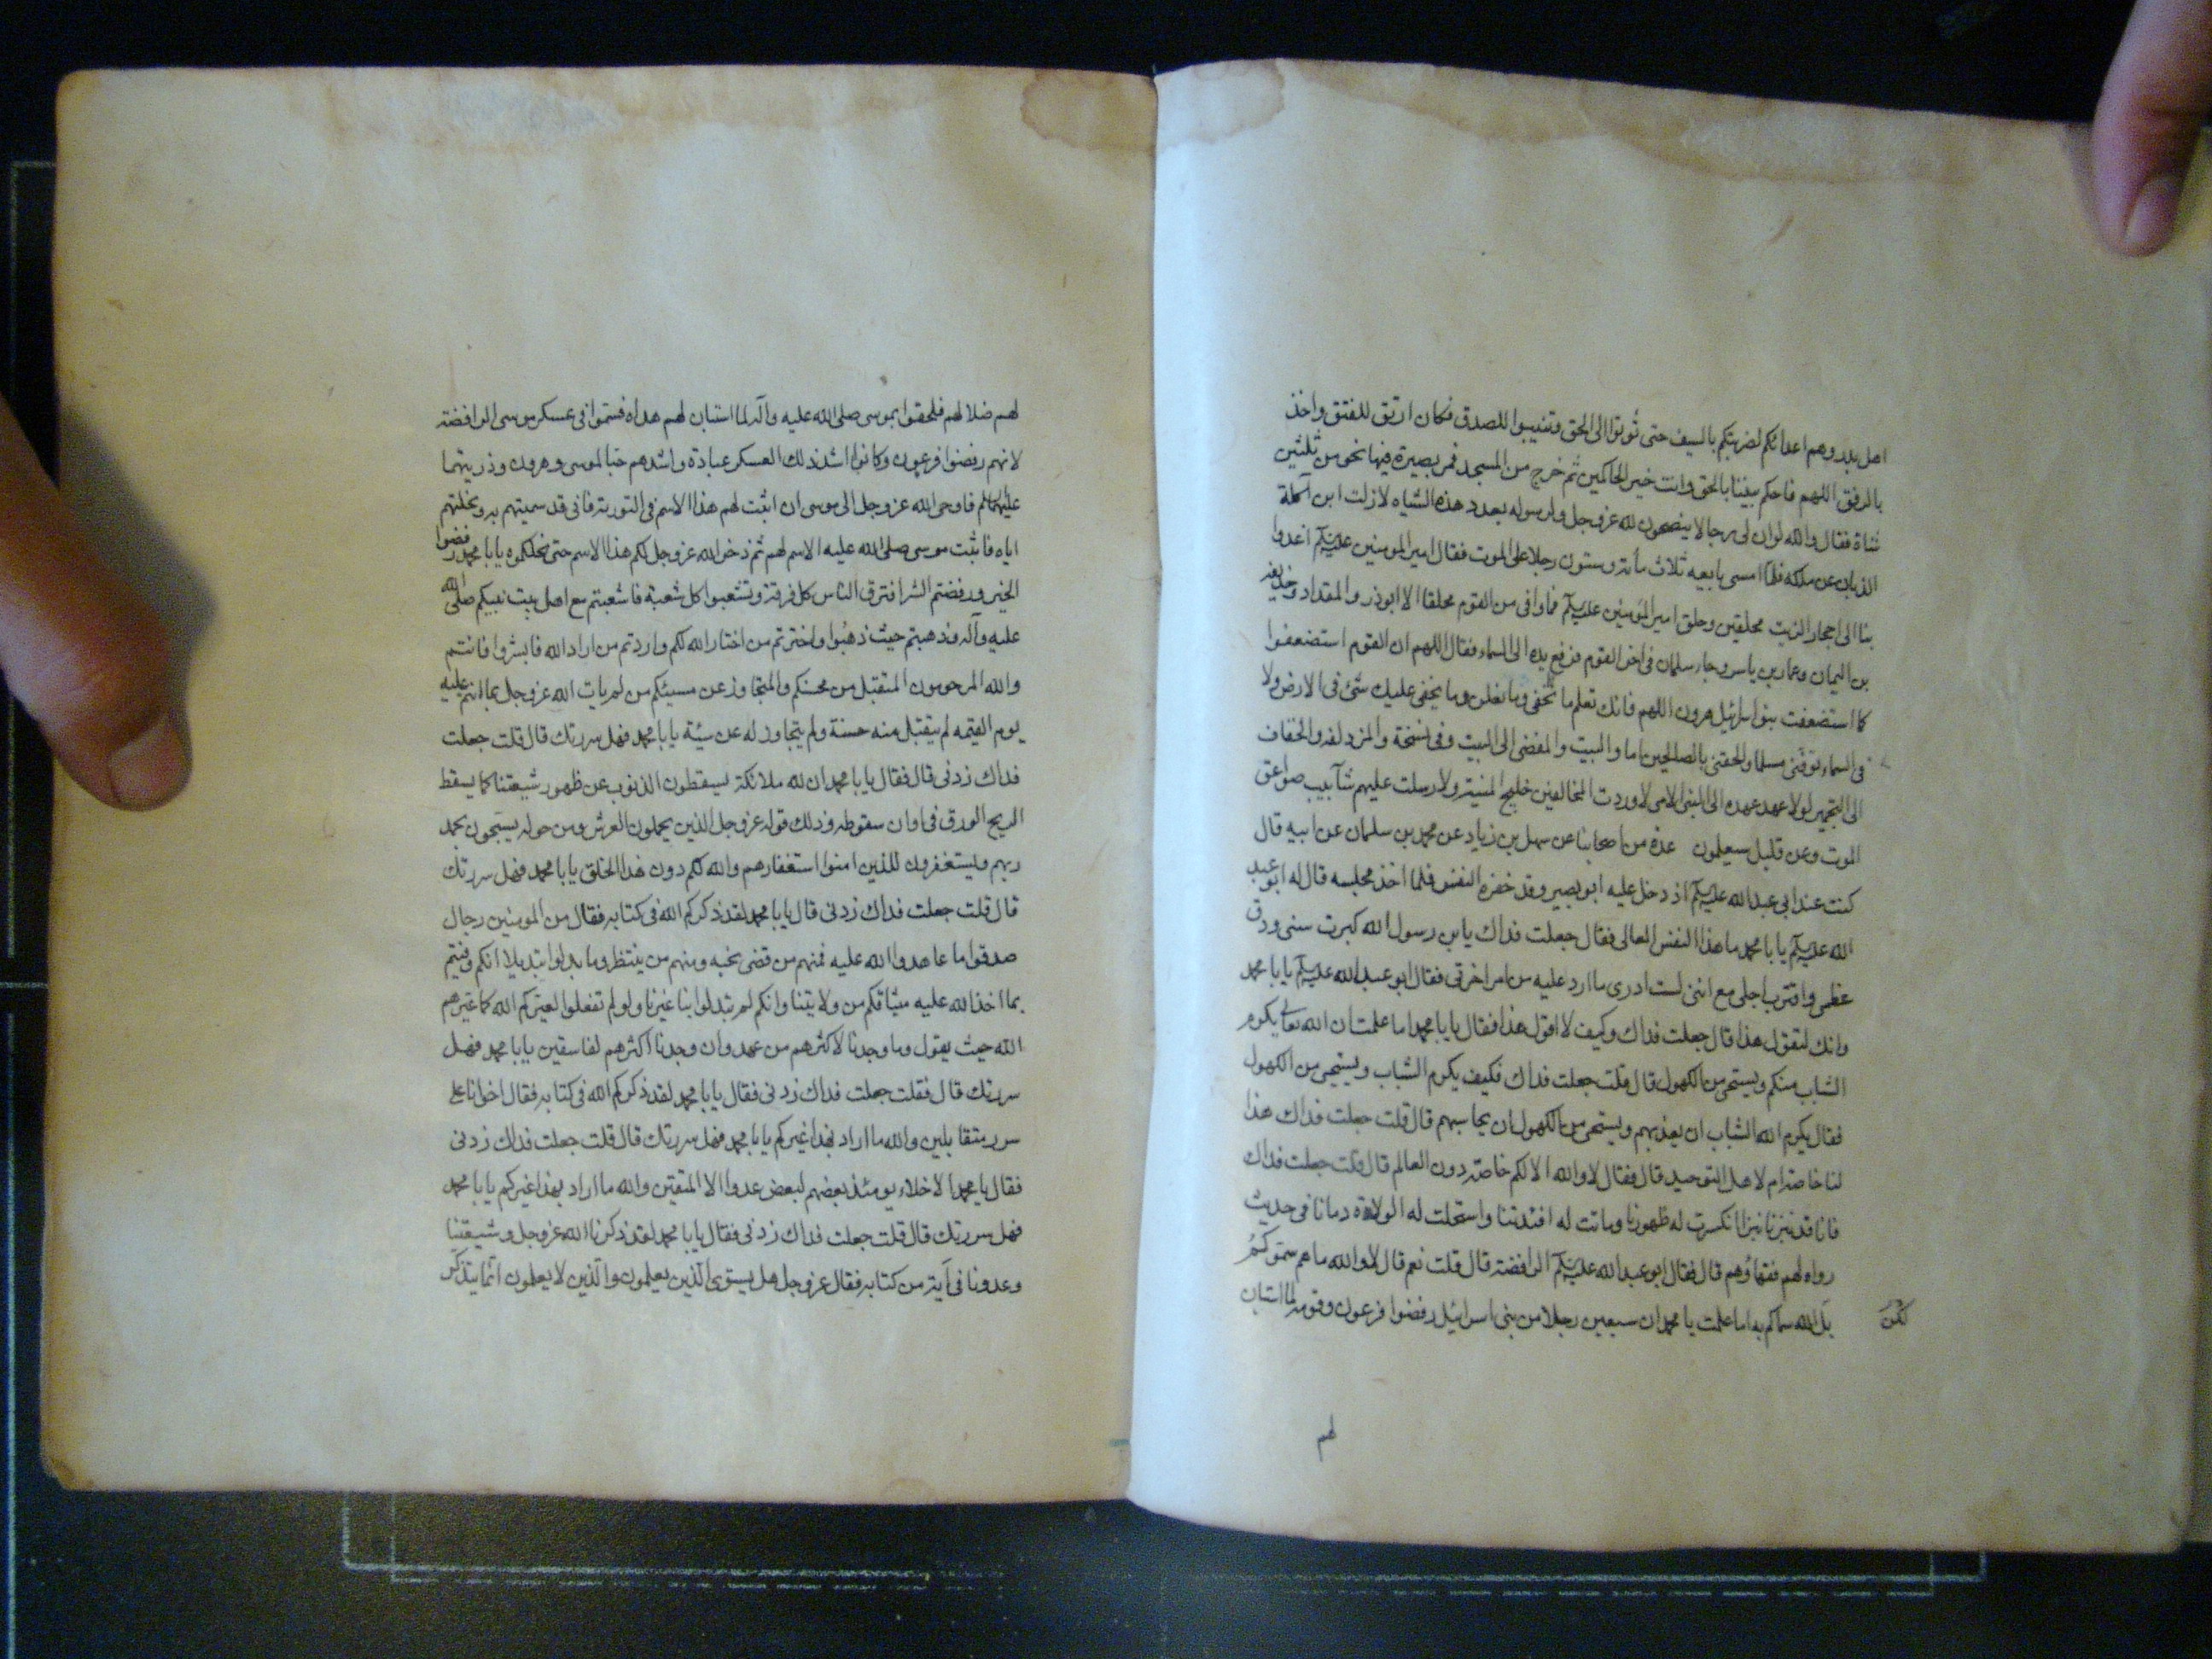 اهل بدر وهم اعدائكم لضربتكم بالسيف حتى تؤتوا الى الحق وتنيبوا للصدق فكان ارتق للفتق واخذ
بالرفق اللهم فاحكم بيننا بالحق وانت خير الحاكمين ثم خرج من المسجد فمر بصيرة فيها نحو من ثلثين
شاة فقال والله لو ان لى رجالا ينصحون لله عز وجل ولرسوله بعدد هذه الشياه لازلت ابن اكلة
الذبان عن ملكه فلما امسى بايعه ثلاث مأة وستون رجلا على الموت فقال امير المومنين عليه السلم اغدوا
بنا الى احجار الزيت محلقين وحلق امير المومنين عليه السلم فما وافى من القوم محلقا الا ابوذر والمقداد وحذيفة
بن اليمان وعمار بن ياسر وجاء سلمان فى اخر القوم فرفع يده الى السماء فقال اللهم ان القوم استضعفوا
كما استضعفت بنو اسرائيل هرون اللهم فانك تعلم ما نخفى وما نعلن وما يخفى عليك شئ فى الارض ولا
فى السماء توفنى مسلما والحقنى بالصالحين اما والبيت والمفضى الى البيت وفى نسخة والمزدلفه والخفاف
الى التجمير لولا عهد عهده الى النبى الامى لاوردت المخالفين خليج المنية ولارسلت عليهم شآبيب صواعق
الموت وعن قليل سيعلمون عدة من اصحابنا عن سهل بن زياد عن محمد بن سلمان عن ابيه قال
كنت عند ابى عبد الله عليه السلم اذ دخل عليه ابو بصير وقد خفزه النفس فلما اخذ مجلسه قال له ابو عبد
الله عليه السلم يا با محمد ما هذا النفس العالى فقال جعلت فداك يابن رسول الله كبرت سنى ودق
عظمى واقترب اجلى مع اننى لست ادرى ما ارد عليه من امر اخرتى فقال ابو عبد الله عليه السلم يا با محمد
وانك لتقول هذا قال جعلت فداك وكيف لا اقول هذا فقال يا با محمد اما علمت ان الله تعالى يكرم
الشباب منكم ويستحيى من الكهول قال قلت جعلت فداك فكيف يكرم الشباب ويستحيى من الكهول
فقال يكرم الله الشباب ان يعذبهم ويستحيى من الكهول ان يحاسبهم قال قلت جعلت فداك هذا
لنا خاصة ام لاهل التوحيد قال فقال لا والله الا لكم خاصة دون العالم قال قلت جعلت فداك
فانا قد نبزنا نبزا انكسرت له ظهورنا وماتت له افئدتنا واستحلت له الولاة دمانا فى حديث
رواه لهم فقهاؤهم قال فقال ابو عبد الله عليه السلم الرافضة قال قلت نعم قال لا والله ما هم سموكم
بل الله سماكم به اما علمت يا با محمد ان سبعين رجلا من بنى اسرائيل رفضوا فرعون وقومه لما استبان
لكن
لهم
لهم ضلالهم فلحقوا بموسى صلى الله عليه وآله لما استبان لهم هداه فسموا فى عسكر موسى الرافضة
لانهم رفضوا فرعون وكانوا اشد ذلك العسكر عبادة واشدهم حبا لموسى وهرون وذريتهما
عليهما السلم فاوحى الله عز وجل الى موسى ان اثبت لهم هذا الاسم فى التورية فانى قد سميتهم به ونحلتهم
اياه فاثبت موسى صلى الله عليه الاسم لهم ثم ذخر الله عز وجل لكم هذا الاسم حتى نحلكموه يا با محمد رفضوا
الخير ورفضتم الشر افترق الناس كل فرقة وتشعبوا كل شعبة فاشعبتم مع اهل بيت نبيكم صلى الله
عليه وآله وذهبتم حيث ذهبوا واخترتم من اختار الله لكم واردتم من اراد الله فابشروا فانتم
والله المرحومون المتقبل من محسنكم والمتجاوز عن مسيئكم من لم يات الله عز وجل بما انتم عليه
يوم القيمة لم يتقبل منه حسنة ولم يتجاوز له عن سيئة يا با محمد فهل سررتك قال قلت جعلت
فداك زدنى قال فقال يا با محمد ان لله ملائكة يسقطون الذنوب عن ظهور شيعتنا كما يسقط
الريح الورق فى اوان سقوطه وذلك قوله عز وجل الذين يحملون العرش ومن حوله يسبحون بحمد
ربهم ويستغفرون للذين امنوا استغفارهم والله لكم دون هذا الخلق يا با محمد فهل سررتك
قال قلت جعلت فداك زدنى قال يا با محمد لقد ذكركم الله فى كتابه فقال من المومنين رجال
صدقوا ما عاهدوا الله عليه فمنهم من قضى نحبه ومنهم من ينتظر وما بدلوا تبديلا انكم وفيتم
بما اخذ الله عليه ميثاقكم من ولايتنا وانكم لم تبدلوا بنا غيرنا ولو لم تفعلوا لعيركم الله كما عيرهم
الله حيث يقول وما وجدنا لاكثرهم من عهد وان وجدنا اكثرهم لفاسقين يا با محمد فهل
سررتك قال فقلت جعلت فداك زدنى فقال يا با محمد لقد ذكركم الله فى كتابه فقال اخوانا على
سرر متقابلين والله ما اراد بهذا غيركم يا با محمد فهل سررتك قال قلت جعلت فداك زدنى
فقال يا محمد الاخلاء يومئذ بعضهم لبعض عدوا الا المتقين والله ما اراد بهذا غيركم يا با محمد
فهل سررتك قال قلت جعلت فداك زدنى فقال يا با محمد لقد ذكرنا الله عز وجل وشيعتنا
وعدونا فى آية من كتابه فقال عز وجل هل يستوى الذين يعلمون والذين لا يعلمون انما يتذكر